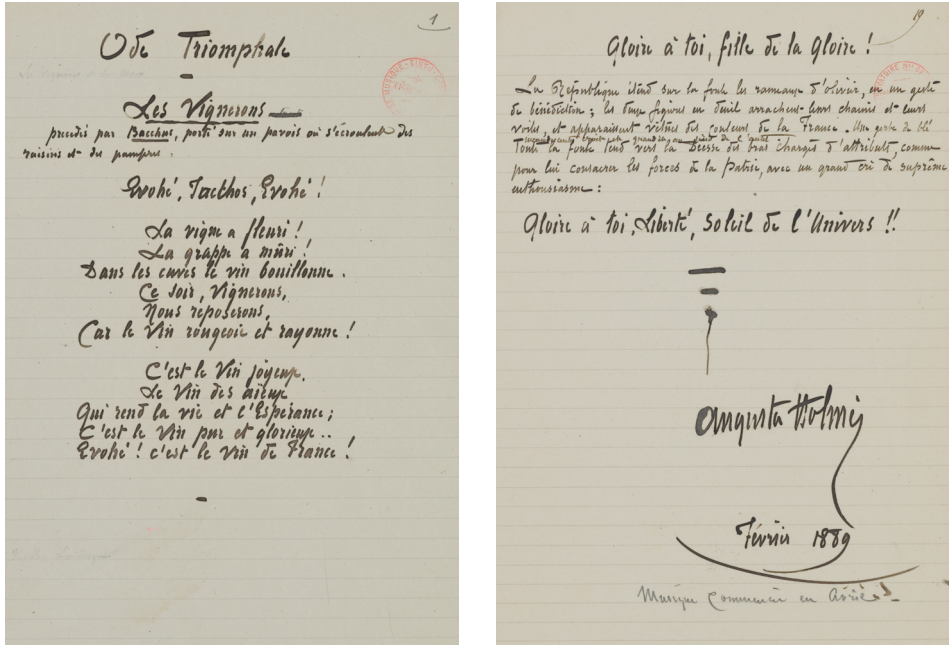 1
Ode Triomphale
Les Vignerons
précédés par Bacchus, porté sur un pavois où s'écroulent des
raisins et des pampres.
Evohé, Iacchos, Evohé !
La vigne a fleuri !
La grappe a mûri !
Dans les cuves le vin bouillonne.
Ce soir, Vignerons,
Nous reposerons,
Car le Vin rougeoie et rayonne !
C'est le Vin joyeux,
Le Vin des aïeux
Qui rend la vie et l'Espérance ;
C'est le Vin pur et glorieux..
Evohé ! c'est le Vin de France !
19
Gloire à toi, fille de la Gloire !
La République étend sur la foule les rameaux d'olivier, en un geste
de bénédiction ; les deux figures en deuil arrachent leurs chaînes et leurs
voiles, et apparaissent vêtues des couleurs de la France. Une gerbe de blé
au pied de l'autel
Toute la foule tend vers la Déesse des bras chargés d'attributs, comme
pour lui consacrer les forces de la Patrie, avec un grand cri de suprême
enthousiasme :
Gloire à toi, Liberté, Soleil de l'Univers !!
Augusta Holmès
Février 1889
Musique commencée en Avril